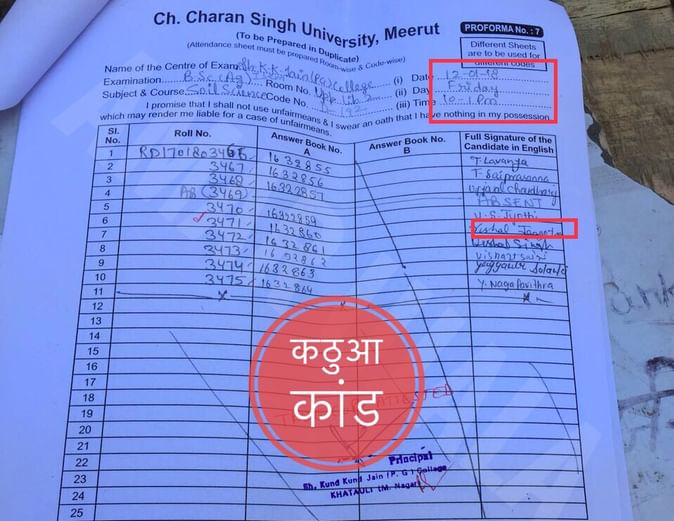 Ch. Charan Singh University, Meerut
PROFORMA No. : 7
(To be Prepared in Duplicate)
(Attendance sheet must be prepared Room-wise & Code-wise)
Different Sheets
are to be used for
different codes
Name of the Centre of Exam. Sh. K.K. Jain (PG) College
Examination B.Sc. (Ag) Room No. Upp. Lib. 2 (i) Date 12-01-18
(ii) Day Friday
Subject & Course Soil Science Code No. (iii) Time 10-1 pm
I promise that I shall not use unfairmeans & I swear an oath that I have nothing in my possession
which may render me liable for a case of unfairmeans.
Sl. No. Roll No. Answer Book No. A Answer Book No. B Full Signature of the Candidate in English
1 RD1701803466 1632855 T. Lavanya
2 3467 1632856 T. Sai prasanna
3 3468 1632857 Chaudhary
4 Ab (3469) ABSENT
5 3470 1632859 V.S. Jyothi
6 3471 1632860 Vishal
7 3472 1632861 Vishal Singh
8 3473 1632862
9 3474 1632863 Solanki
10 3475 1632864 Y. Naga Pavithra
11 x x x
12
13
14
15
16
17
18
19
20
21
22
23
24
25
कठुआ
कांड
Principal
Sh. Kund Kund Jain (P. G.) College
KHATAULI (M. Nagar)